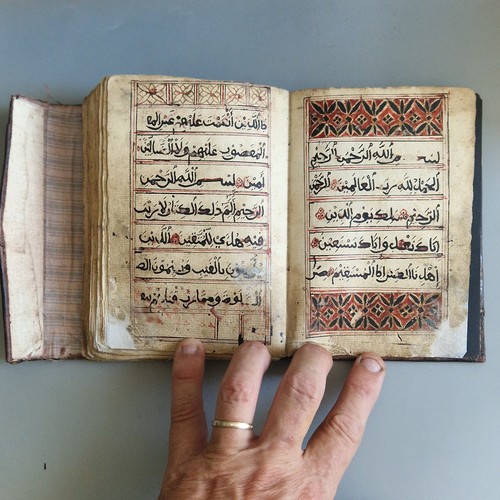 بسم الله الرحمن الرحيم
الحمد لله رب العالمين الرحمن
الرحيم ملك يوم الدين
اياك نعبد واياك نستعين
اهدنا الصراط المستقيم صر
اط الذين انعمت عليهم غير
المغضوب عليهم ولا الضالين
امين بسم الله الرحمن
الرحيم الم ذلك الكتاب لا ريب
فيه هدى للمتقين الذين
يؤمنون بالغيب ويقيمون الصـ
ـلوة ومما